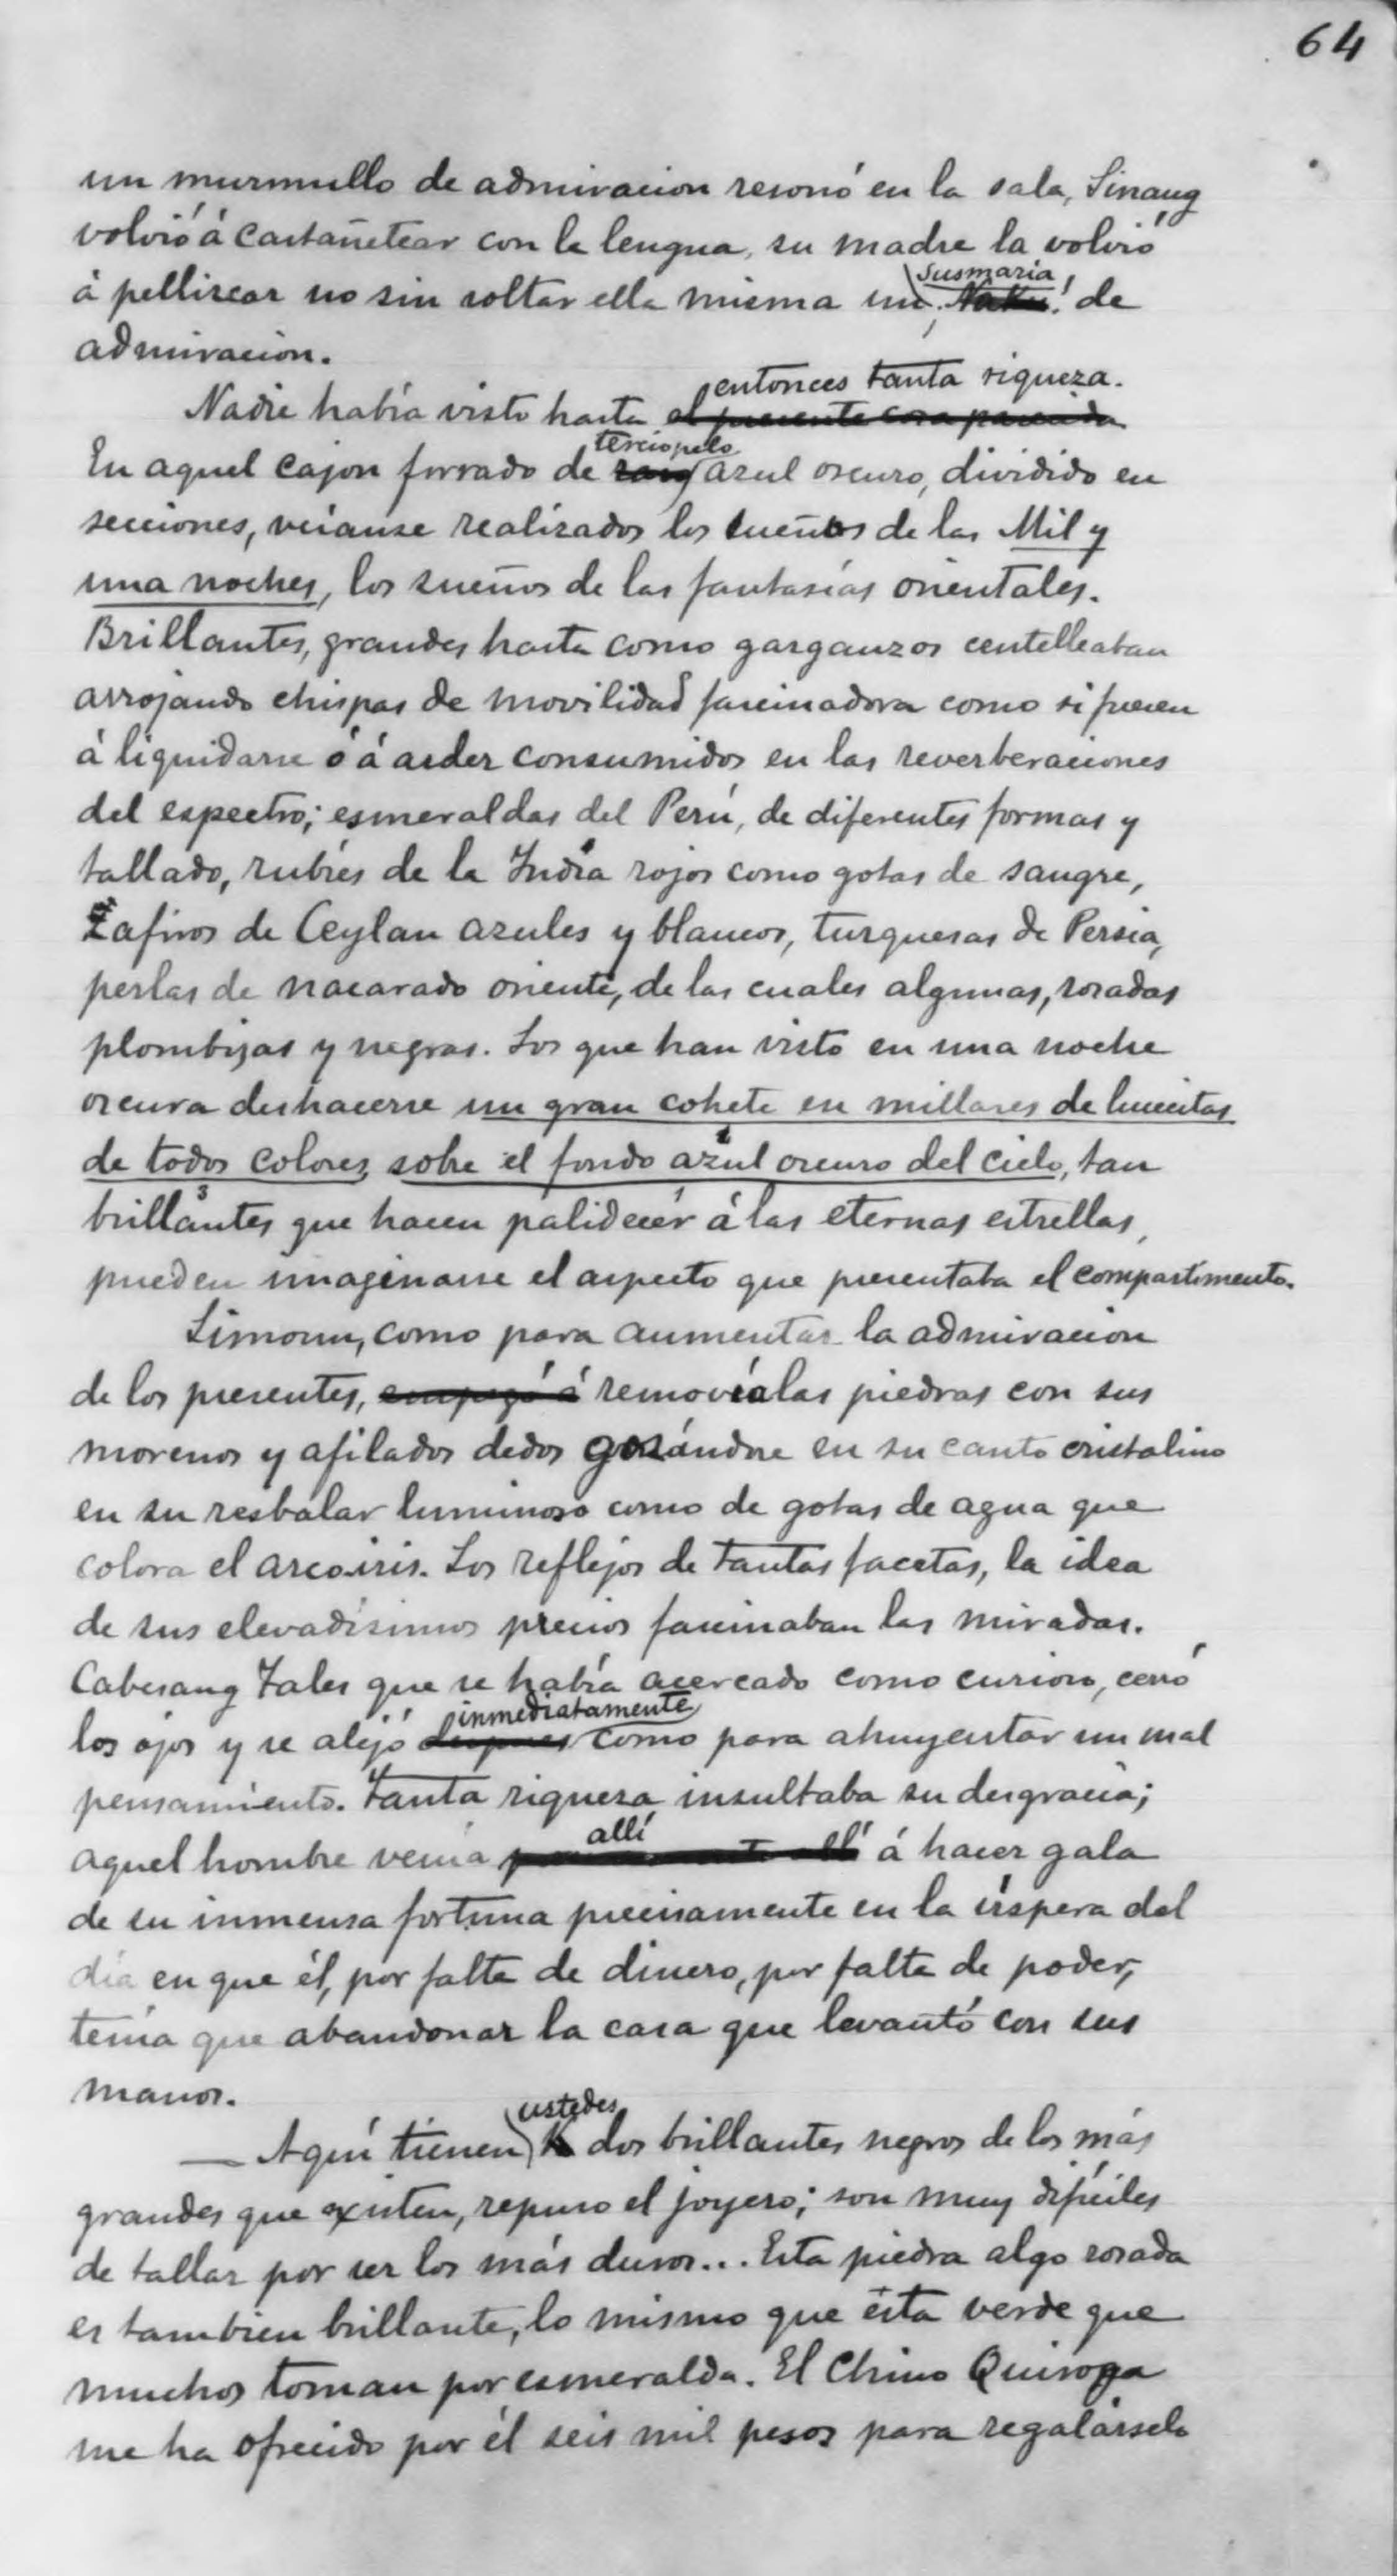 64
un murmullo de admiracion resonó en la sala, Sinang
volvió á castañetear con la lengua, su madre la volvió
á pelliscar no sin soltar ella misma un ¡ Susmaria Naku! de
admiracion.
entonces tanta riqueza.
Nadie había visto hasta el presente cosa parecida
terciopelo
En aquel cajon forrado de raso azul oscuro, dividido en
secciones, veíanse realizados los sueños de las Mil y
una noches, los sueños de las fantasías orientales.
Brillantes, grandes hasta como garganzos centelleaban
arrojando chispas de movilidad fascinadora como si fuesen
á liquidarse ó á arder consumidos en las reverberaciones
del espectro; esmeraldas del Perú, de diferentes formas y
tallado, rubíes de la India rojos como gotas de sangre,
zafiros de Ceylan azules y blancos, turquesas de Persia,
perlas de nacarado oriente, de las cuales algunas, rosadas
plomizas y negras. Los que han visto en una noche
oscura deshacerse un gran cohete en millares de lucecitas
de todos colores, sobre el fondo azul oscuro del cielo, tan
brillantes que hacen palidecer á las eternas estrellas,
pueden imaginarse el aspecto que presentaba el compartimento.
Simoun, como para aumentar la admiracion
de los presentes, empezó á removía las piedras con sus
morenos y afilados dedos gozándose en su canto cristalino
en su resbalar luminoso como de gotas de agua que
colora el arco iris. Los reflejos de tantas facetas, la idea
de sus elevadísimos precios fascinaban las miradas.
Cabesang Tales que se había acercado como curioso, cerró
inmediatamente
los ojos y se alejó despues como para ahuyentar un mal
pensamiento. Tanta riqueza insultaba su desgracia;
allí
aquel hombre venía á hacer gala
de su inmensa fortuna precisamente en la víspera del
día en que él, por falta de dinero, por falta de poder,
tenía que abandonar la casa que levantó con sus
manos.
ustedes
— Aquí tienen V dos brillantes negros de los más
grandes que existen, repuso el joyero; son muy difíciles
de tallar por ser los más duros... Esta piedra algo rosada
es tambien brillante, lo mismo que ésta verde que
muchos toman por esmeralda. El Chino Quiroga
me ha ofrecido por él seis mil pesos para regalárselo